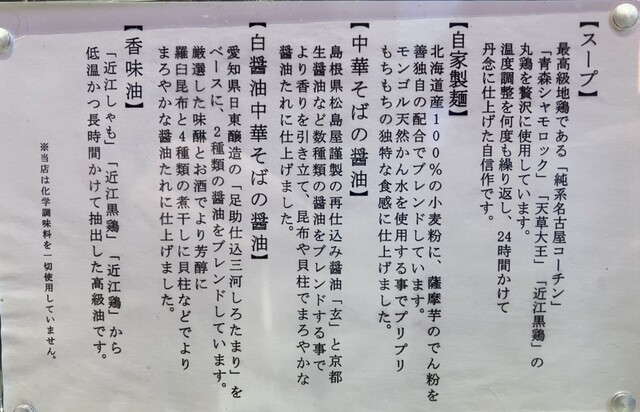 【スープ】
最高級地鶏である「純系名古屋コーチン」
「青森シャモロック」「天草大王」「近江黒鶏」の
丸鶏を贅沢に使用しています。
温度調整を何度も繰り返し、24時間かけて
丹念に仕上げた自信作です。
【自家製麺】
北海道産100%の小麦粉に、薩摩芋のでん粉を
善独自の配合でブレンドしています。
モンゴル天然かん水を使用する事でプリプリ
もちもちの独特な食感に仕上げました。
【中華そばの醤油】
島根県松島屋謹製の再仕込み醤油「玄」と京都
生醤油など数種類の醤油をブレンドする事で
より香りを引き立て、昆布や貝柱でまろやかな
醤油たれに仕上げました。
【白醤油中華そばの醤油】
愛知県日東醸造の「足助仕込三河しろたまり」を
ベースに、2種類の醤油をブレンドしています。
厳選した味醂とお酒でより芳醇に
羅臼昆布と4種類の煮干しに貝柱などでより
まろやかな醤油たれに仕上げました。
【香味油】
「近江しゃも」「近江黒鶏」「近江鶏」から
低温かつ長時間かけて抽出した高級油です。
※当店は化学調味料を一切使用していません。